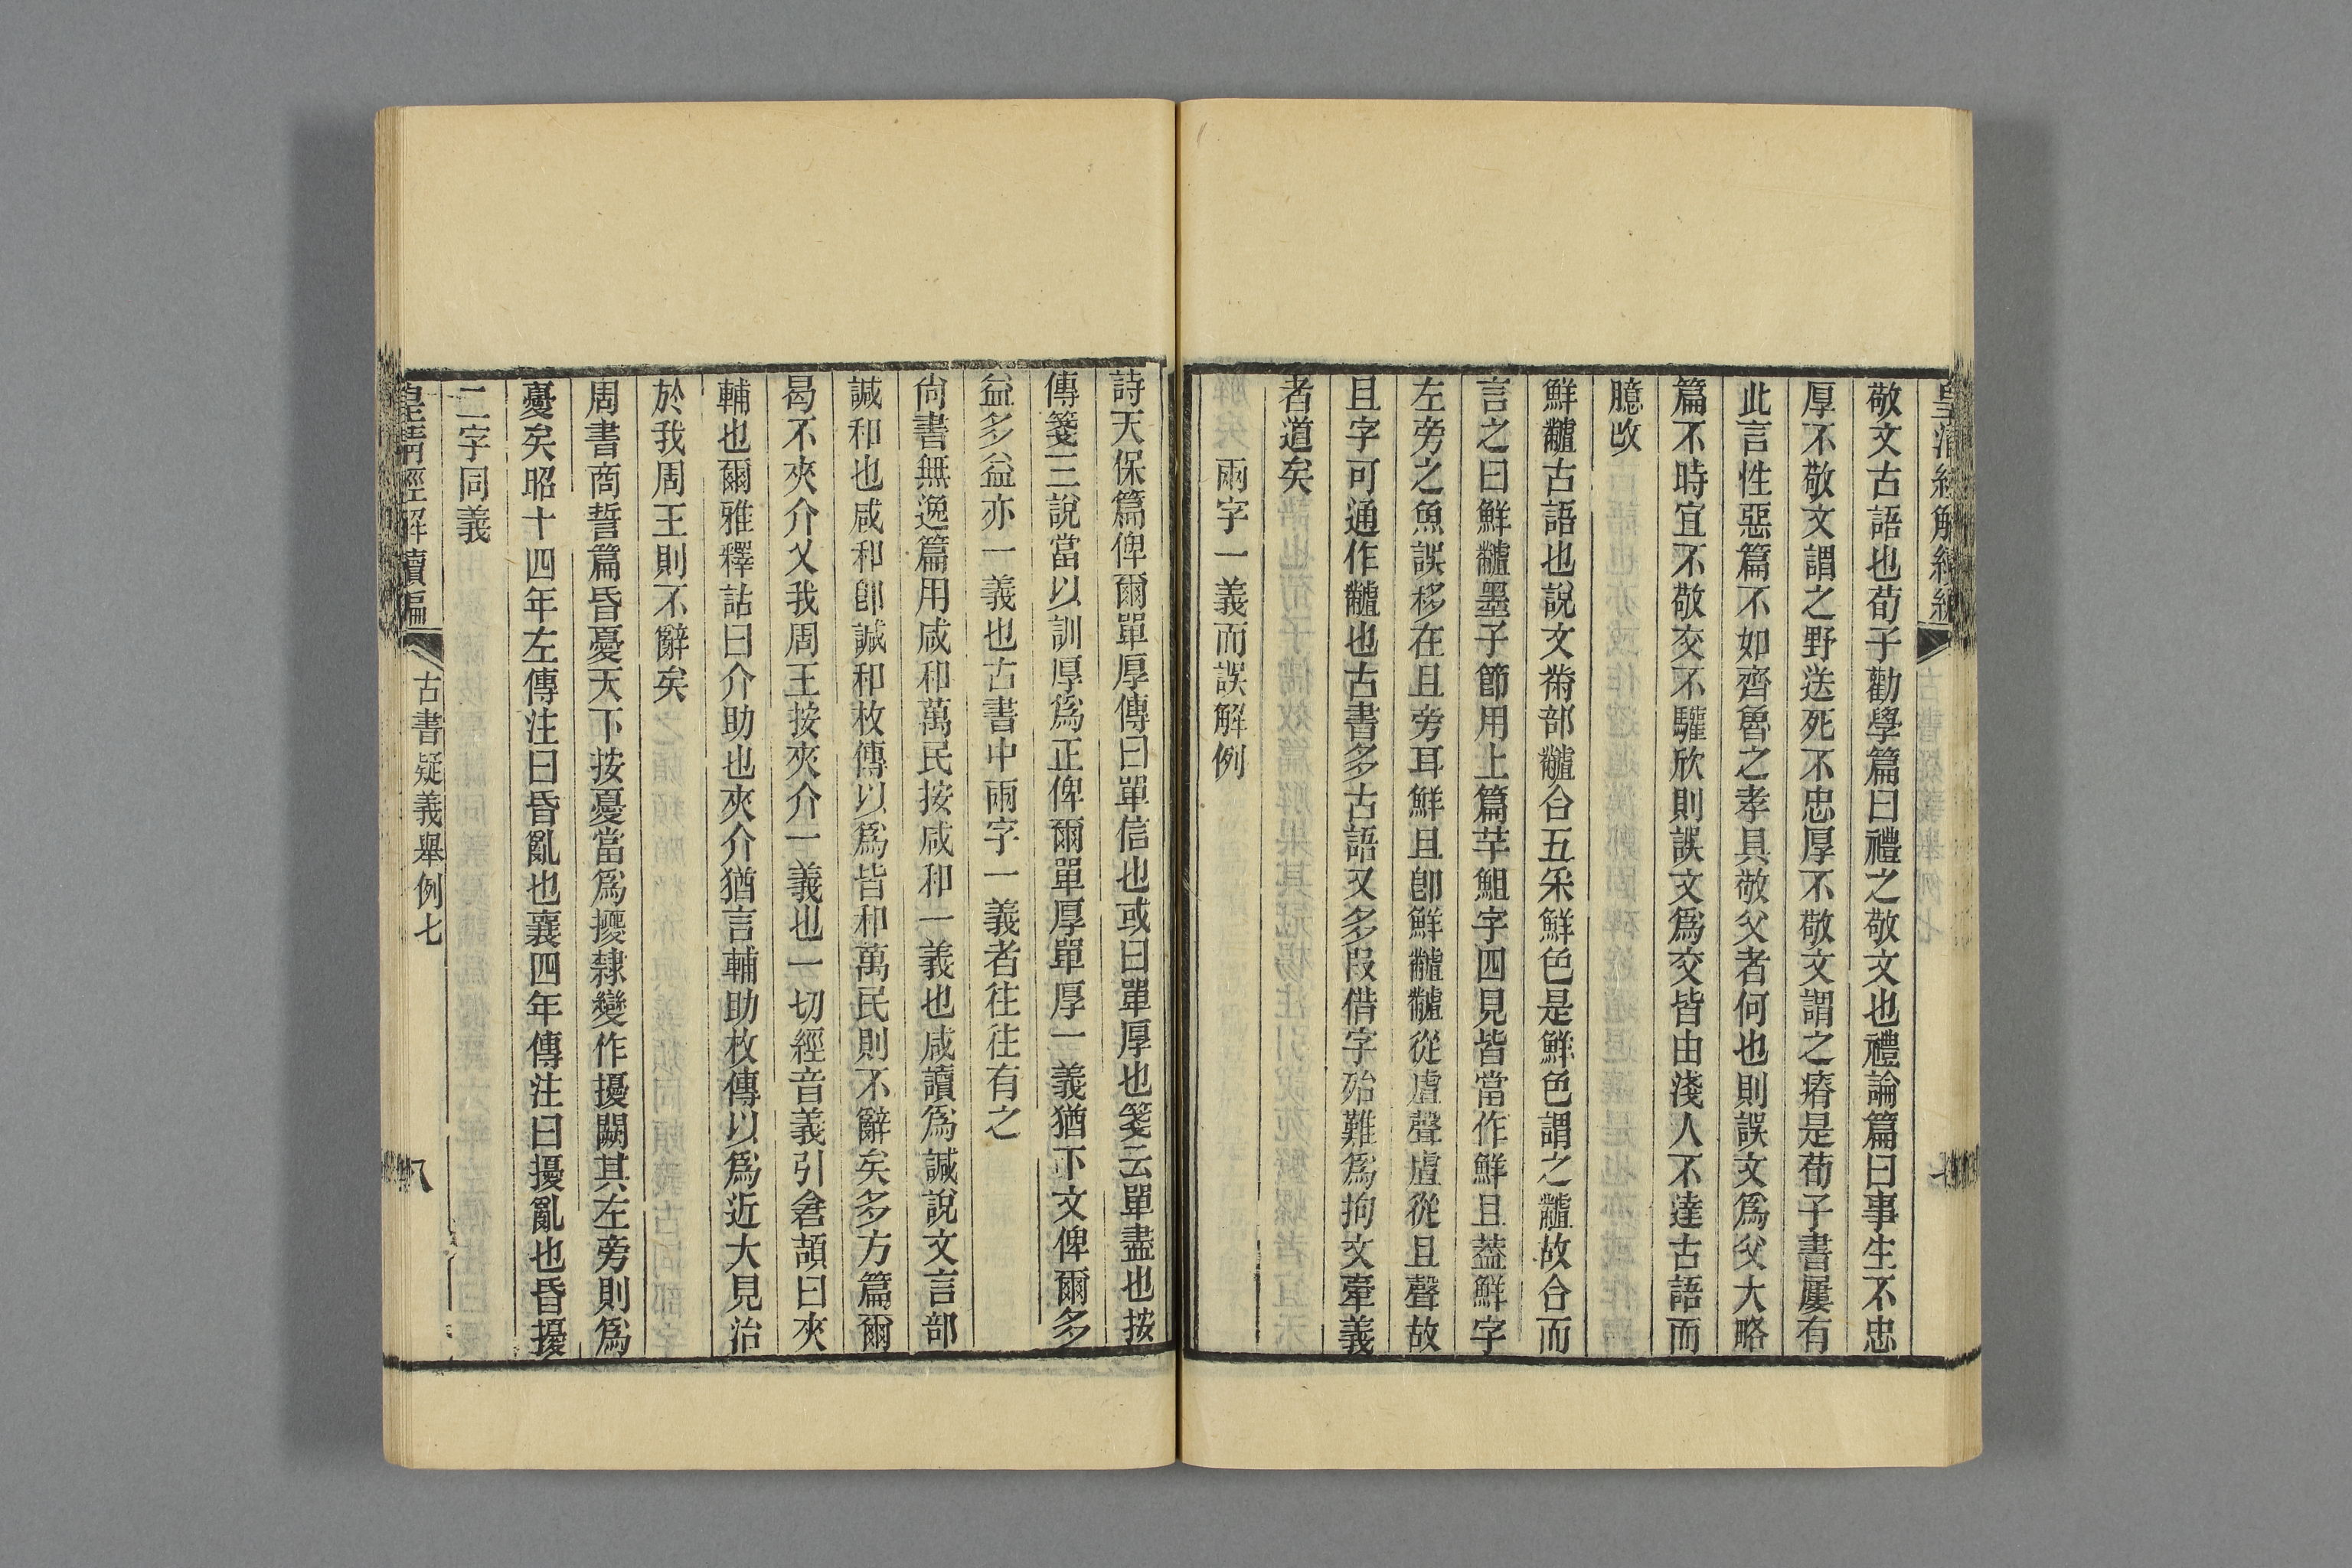 敬文古語也荀子勸學篇曰禮之敬文也禮論篇曰事生不忠
厚不敬文謂之野送死不忠厚不敬文謂之瘠是荀子書屢有
此言性惡篇不如齊魯之孝具敬父者何也則誤文爲父大略
篇不時宜不敬交不驩欣則誤文爲交皆由淺人不達古語而
臆改
鮮黸古語也說文黹部黸合五采鮮色是鮮色謂之黸故合而
言之曰鮮黸墨子節用上篇芊䱉字四見皆當作鮮且葢鮮字
左旁之魚誤移在且旁耳鮮且卽鮮黸黸從虘聲虘從且聲故
且字可通作黸也古書多古語又多叚借字殆難爲拘文牽義
者道矣
兩字一義而誤解例
詩天保篇俾爾單厚傳曰單信也或曰單厚也箋云單盡也按
傳箋三說當以訓厚爲正俾爾單厚單厚一義猶下文俾爾多
益多益亦一義也古書中兩字一義者往往有之
尙書無逸篇用咸和萬民按咸和一義也咸讀爲諴說文言部
諴和也咸和卽諴和枚傳以爲皆和萬民則不辭矣多方篇爾
曷不夾介乂我周王按夾介一義也一切經音義引倉頡曰夾
輔也爾雅釋詁曰介助也夾介猶言輔助枚傳以爲近大見治
於我周王則不辭矣
周書商誓篇昏憂天下按憂當爲擾隸變作擾闕其左旁則爲
憂矣昭十四年左傳注曰昏亂也襄四年傳注曰擾亂也昏擾
二字同義
皇淸經解續編
古書疑義舉例七
八